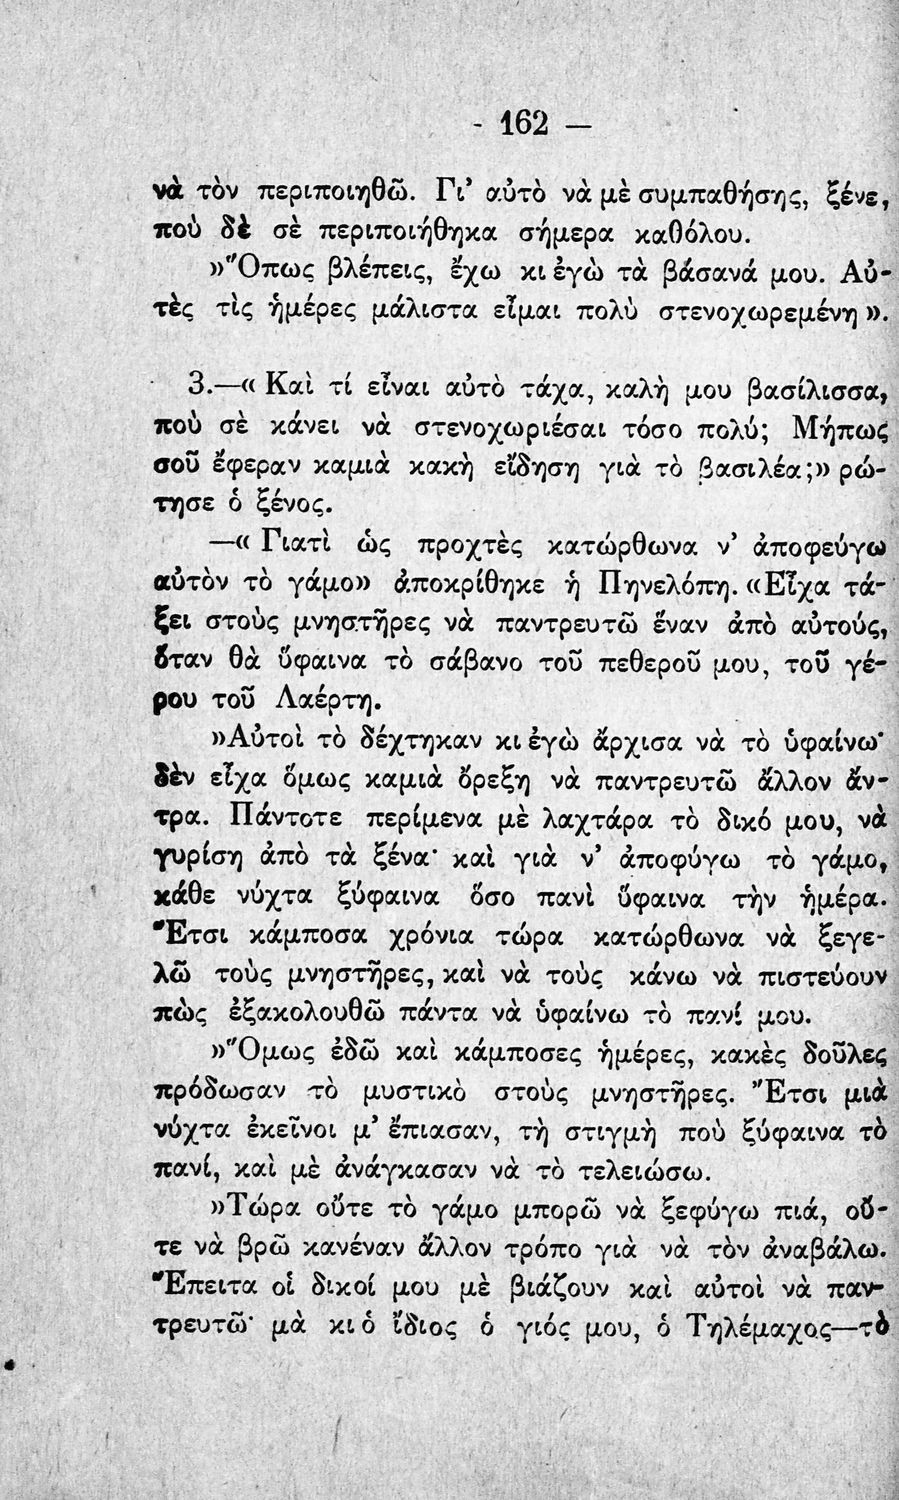 - 162 —
νὰ τὸν περιποιηθῶ. Γι’ αὐτὸ νὰ μὲ συμπαθήσης, ξένε,
ποὺ δὲ σὲ περιποιήθηκα σήμερα καθόλου.
»Ὅπως βλέπεις, ἔχω κι ἐγὼ τὰ βάσανά μου. Αὐ-
τὲς τὶς ἡμέρες μάλιστα εἶμαι πολὺ στενοχωρεμένη».
3.—« Καὶ τί εἶναι αὐτὸ τάχα, καλὴ μου βασίλισσα,
ποὺ σὲ κάνει νὰ στενοχωριέσαι τόσο πολύ; Μήπως
σοῦ ἔφεραν καμιὰ κακὴ εἴδηση γιὰ τὸ βασιλέα;» ρώ-
τησε ὁ ξένος.
—« Γιατὶ ὡς προχτὲς κατώρθωνα ν’ ἀποφεύγω
αὐτὸν τὸ γάμο» ἀποκρίθηκε ἡ Πηνελόπη. «Εἶχα τά-
ξει στοὺς μνηστῆρες νὰ παντρευτῶ ἕναν ἀπὸ αὐτούς,
ὅταν θὰ ὕφαινα τὸ σάβανο τοῦ πεθεροῦ μου, τοῦ γέ-
ρου τοῦ Λαέρτη.
»Αὐτοὶ τὸ δέχτηκαν κι ἐγὼ ἄρχισα νὰ τὸ ὑφαίνω·
δὲν εἶχα ὅμως καμιὰ ὄρεξη νὰ παντρευτῶ ἄλλον ἄν-
τρα. Πάντοτε περίμενα μὲ λαχτάρα τὸ δικό μου, νὰ
γυρίση ἀπὸ τὰ ξένα· καὶ γιὰ ν’ ἀποφύγω τὸ γάμο,
κάθε νύχτα ξύφαινα ὅσο πανὶ ὕφαινα τὴν ἡμέρα.
Ἔτσι κάμποσα χρόνια τώρα κατώρθωνα νὰ ξεγε-
λῶ τοὺς μνηστῆρες, καὶ νὰ τοὺς κάνω νὰ πιστεύουν
πὼς ἐξακολουθῶ πάντα νὰ ὑφαίνω τὸ πανί μου.
»Ὅμως ἐδῶ καὶ κάμποσες ἡμέρες, κακὲς δοῦλες
πρόδωσαν τὸ μυστικὸ στοὺς μνηστῆρες. Ἔτσι μιὰ
νύχτα ἐκεῖνοι μ’ ἔπιασαν, τὴ στιγμὴ ποὺ ξύφαινα τὸ
πανί, καὶ μὲ ἀνάγκασαν νὰ τὸ τελειώσω.
»Τώρα οὔτε τὸ γάμο μπορῶ νὰ ξεφύγω πιά, οὔ-
τε νὰ βρῶ κανέναν ἄλλον τρόπο γιὰ νὰ τὸν ἀναβάλω.
Ἔπειτα οἱ δικοί μου μὲ βιάζουν καὶ αὐτοὶ νὰ παν-
τρευτῶ· μὰ κι ὁ ἴδιος ὁ γιός μου, ὁ Τηλέμαχος—τὸ